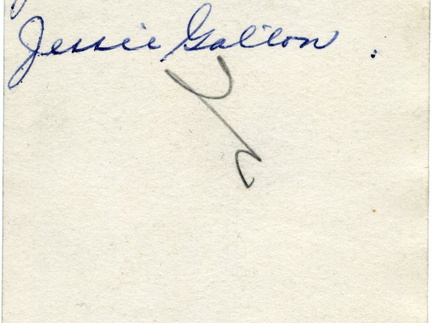 Jessie Galton.